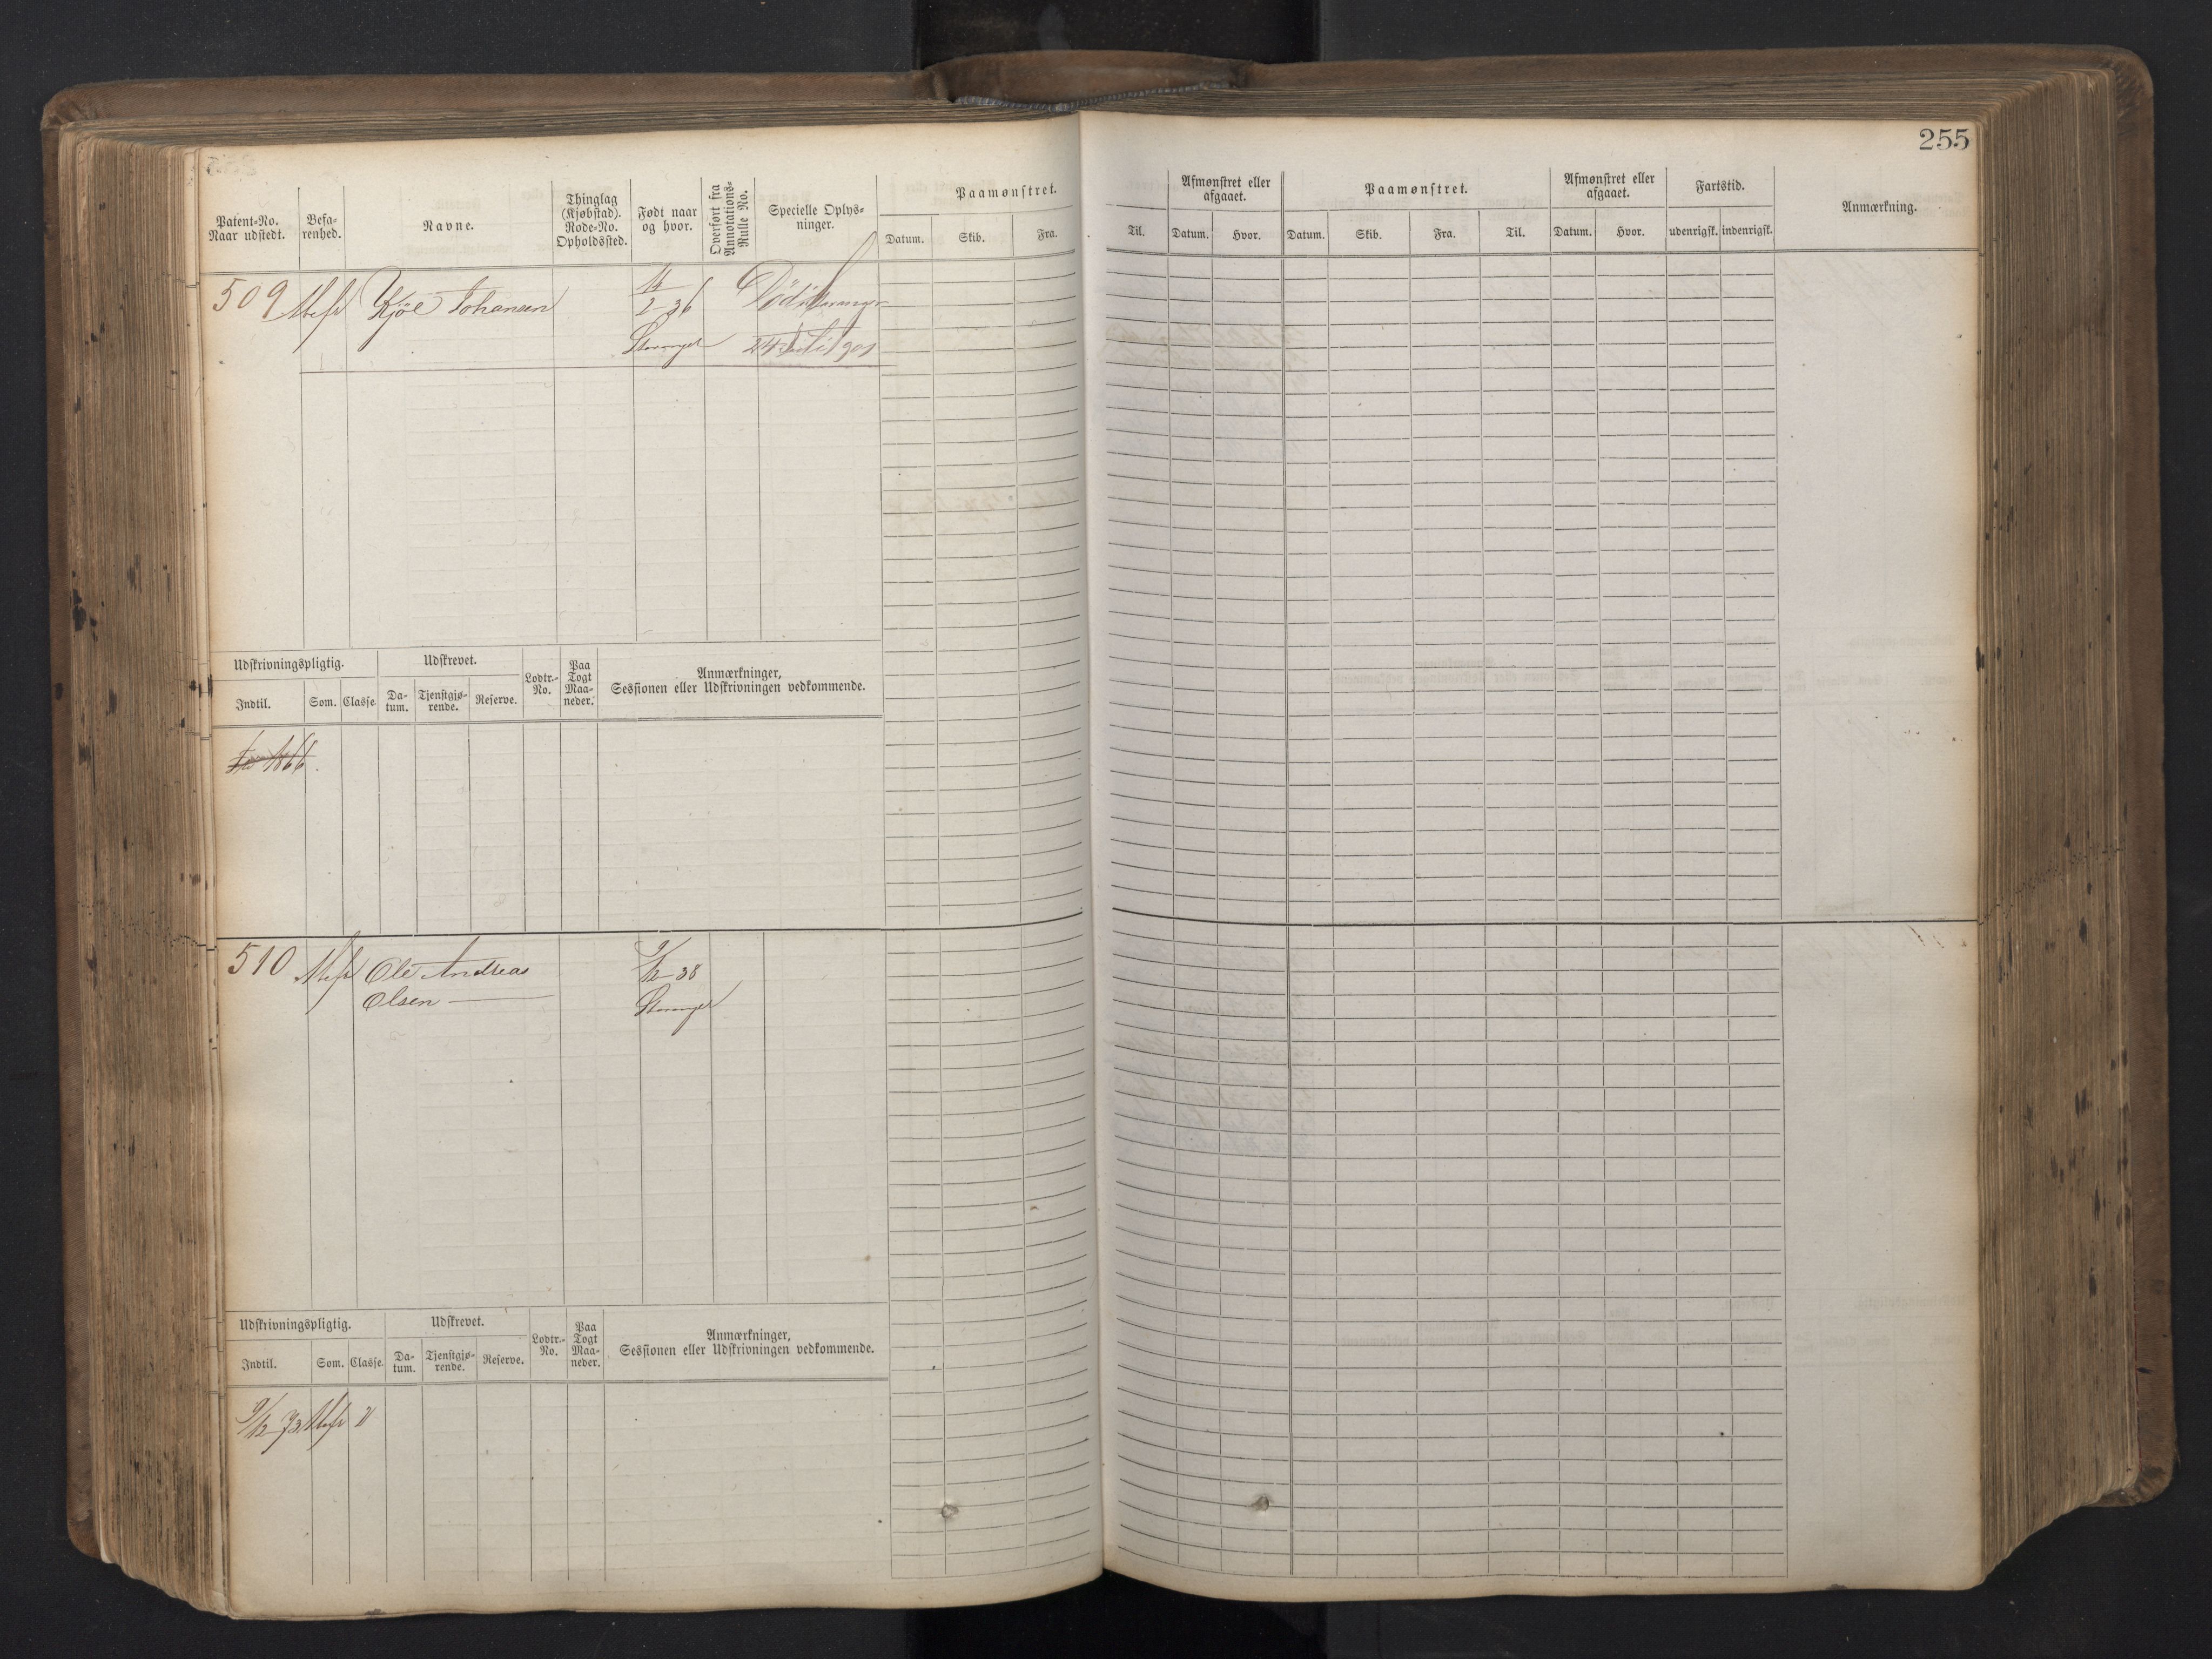 255
Patent-No. Naar udstedt.
Befa-renhed.
Navne.
Thinglag (Kjøbstad). Rode-No. Opholdssted.
Født naar og hvor.
Overført fra Annotations-Rulle No.
Specielle Oplys-ninger.
Paamønstret.
Datum. Skib. Fra.
Til.
Afmønstret eller afgaaet.
Datum. Hvor.
Paamønstret.
Datum. Skib. Fra. Til.
Afmønstret eller afgaaet.
Datum. Hvor.
Fartstid.
udenrigsk. indenrigsk.
Anmærkning.
509 Kjöl Johansen
2-36
Stavanger
24 Juli 1901
Udskrivningspligtig.
Indtil. Som. Classe.
Udskrevet.
Da-tum. Tjenstgjø-rende. Reserve.
Lodtr.-No.
Paa Togt Maa-neder.
Anmærkninger,
Sessionen eller Udskrivningen vedkommende.
1866
510 Ole Andreas
Olsen
9/12-38
Stavanger
Udskrivningspligtig.
Indtil. Som. Classe.
Udskrevet.
Da-tum. Tjenstgjø-rende. Reserve.
Lodtr.-No.
Paa Togt Maa-neder.
Anmærkninger,
Sessionen eller Udskrivningen vedkommende.
9/12 73